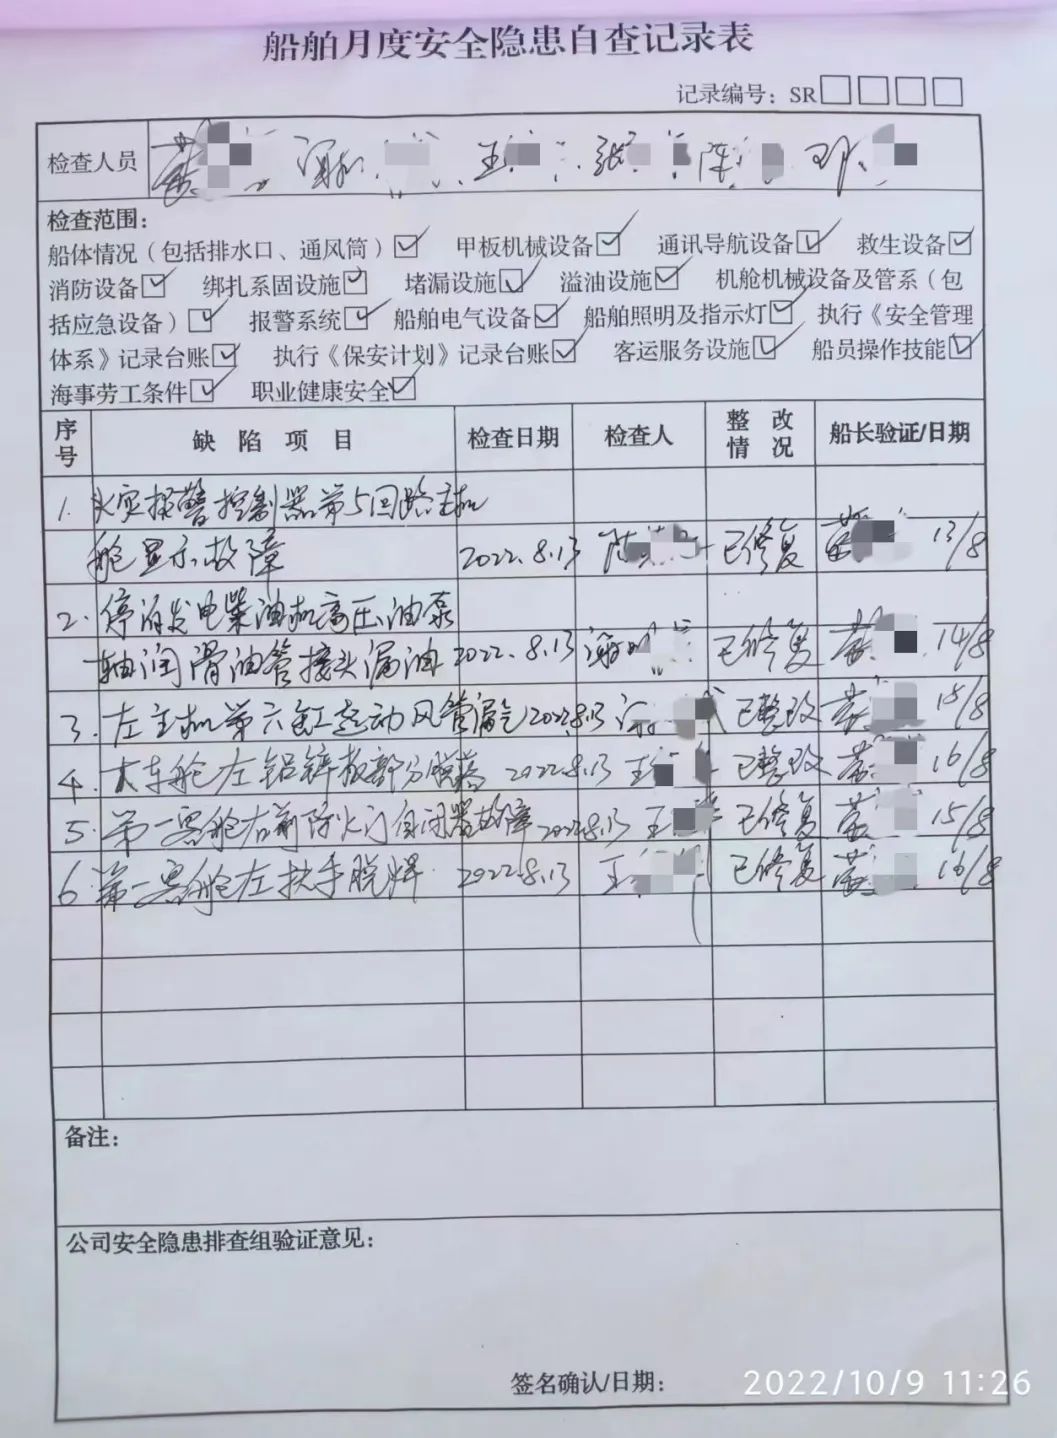 船舶月度安全隐患自查记录表
记录编号：SR□□□□
检查人员 王 张 陈
检查范围：
船体情况（包括排水口、通风筒）☑ 甲板机械设备☑ 通讯导航设备☑ 救生设备☑
消防设备☑ 绑扎系固设施☑ 堵漏设施☑ 溢油设施☑ 机舱机械设备及管系（包
括应急设备）☑ 报警系统☑ 船舶电气设备☑ 船舶照明及指示灯☑ 执行《安全管理
体系》记录台账☑ 执行《保安计划》记录台账☑ 客运服务设施☑ 船员操作技能☑
海事劳工条件☑ 职业健康安全☑
序号 缺陷项目 检查日期 检查人 整改情况 船长验证/日期
1. 火灾报警控制器第5回路主机
舱显示故障 2022.8.13 陈 已修复 13/8
2. 停泊发电柴油机高压油泵
轴润滑油管接头漏油 2022.8.13 谢 已修复 14/8
3. 左主机第六缸起动风管漏气 2022.8.13 已整改 18/8
4. 大车舱左铝锌板部分脱落 2022.8.13 王 已整改 16/8
5. 第一客舱右前防火门自闭器故障 2022.8.13 王 已修复 15/8
6. 第二客舱左扶手脱焊 2022.8.13 王 已修复 16/8
备注：
公司安全隐患排查组验证意见：
签名确认/日期：
2022/10/9 11:26